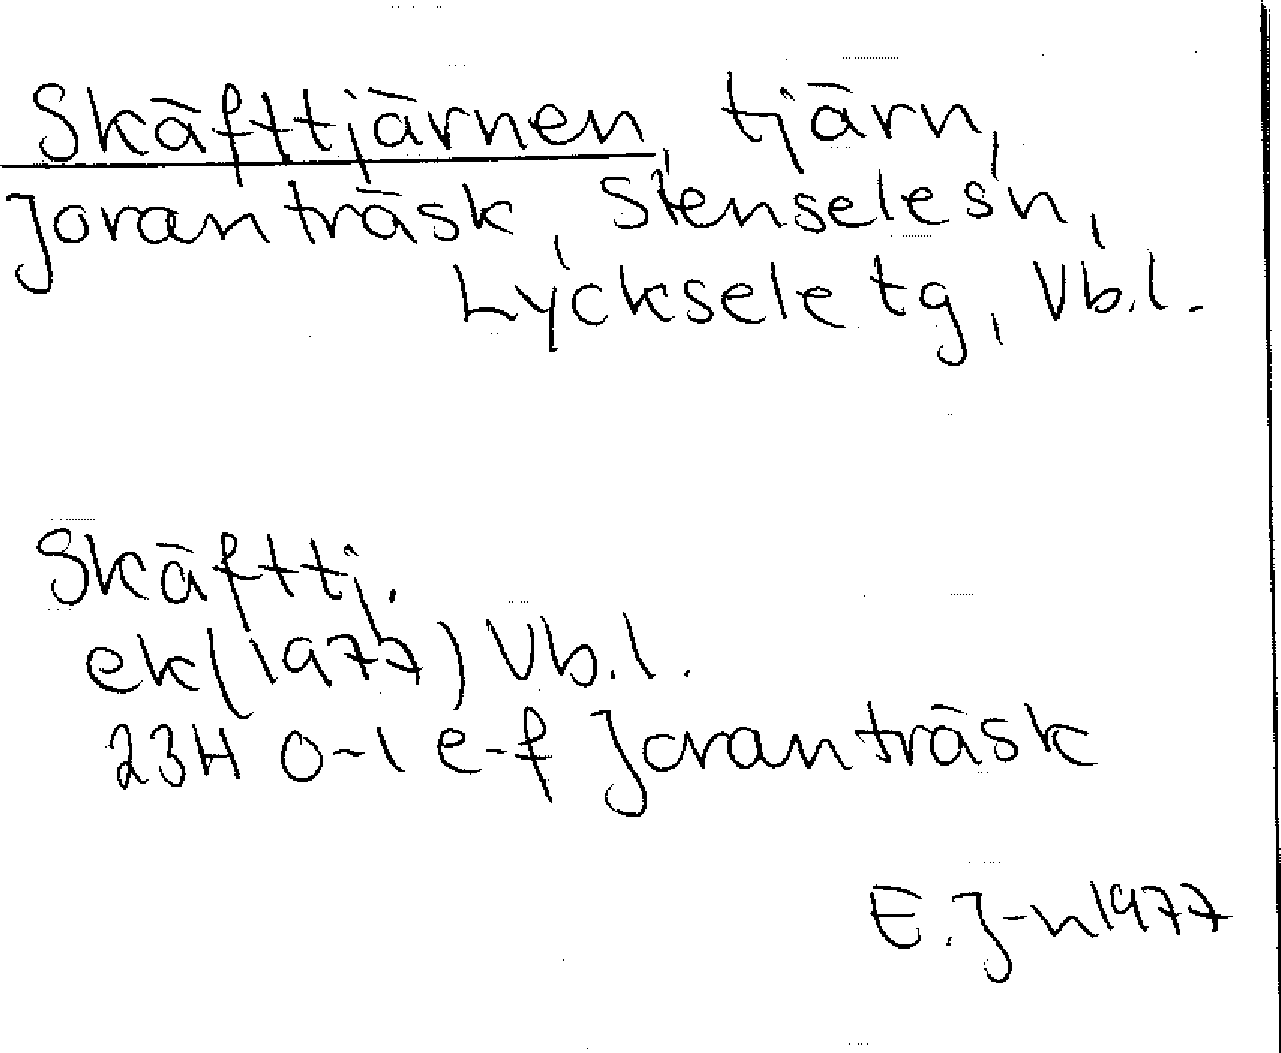 Skäfttjärnen, tjärn,
Joranträsk, Stensele sn,
Lycksele tg, Vb.l.
Skäfttj.
ek (1977) Vb.l.
23H 0-1 e-f Joranträsk
E.J-n 1977